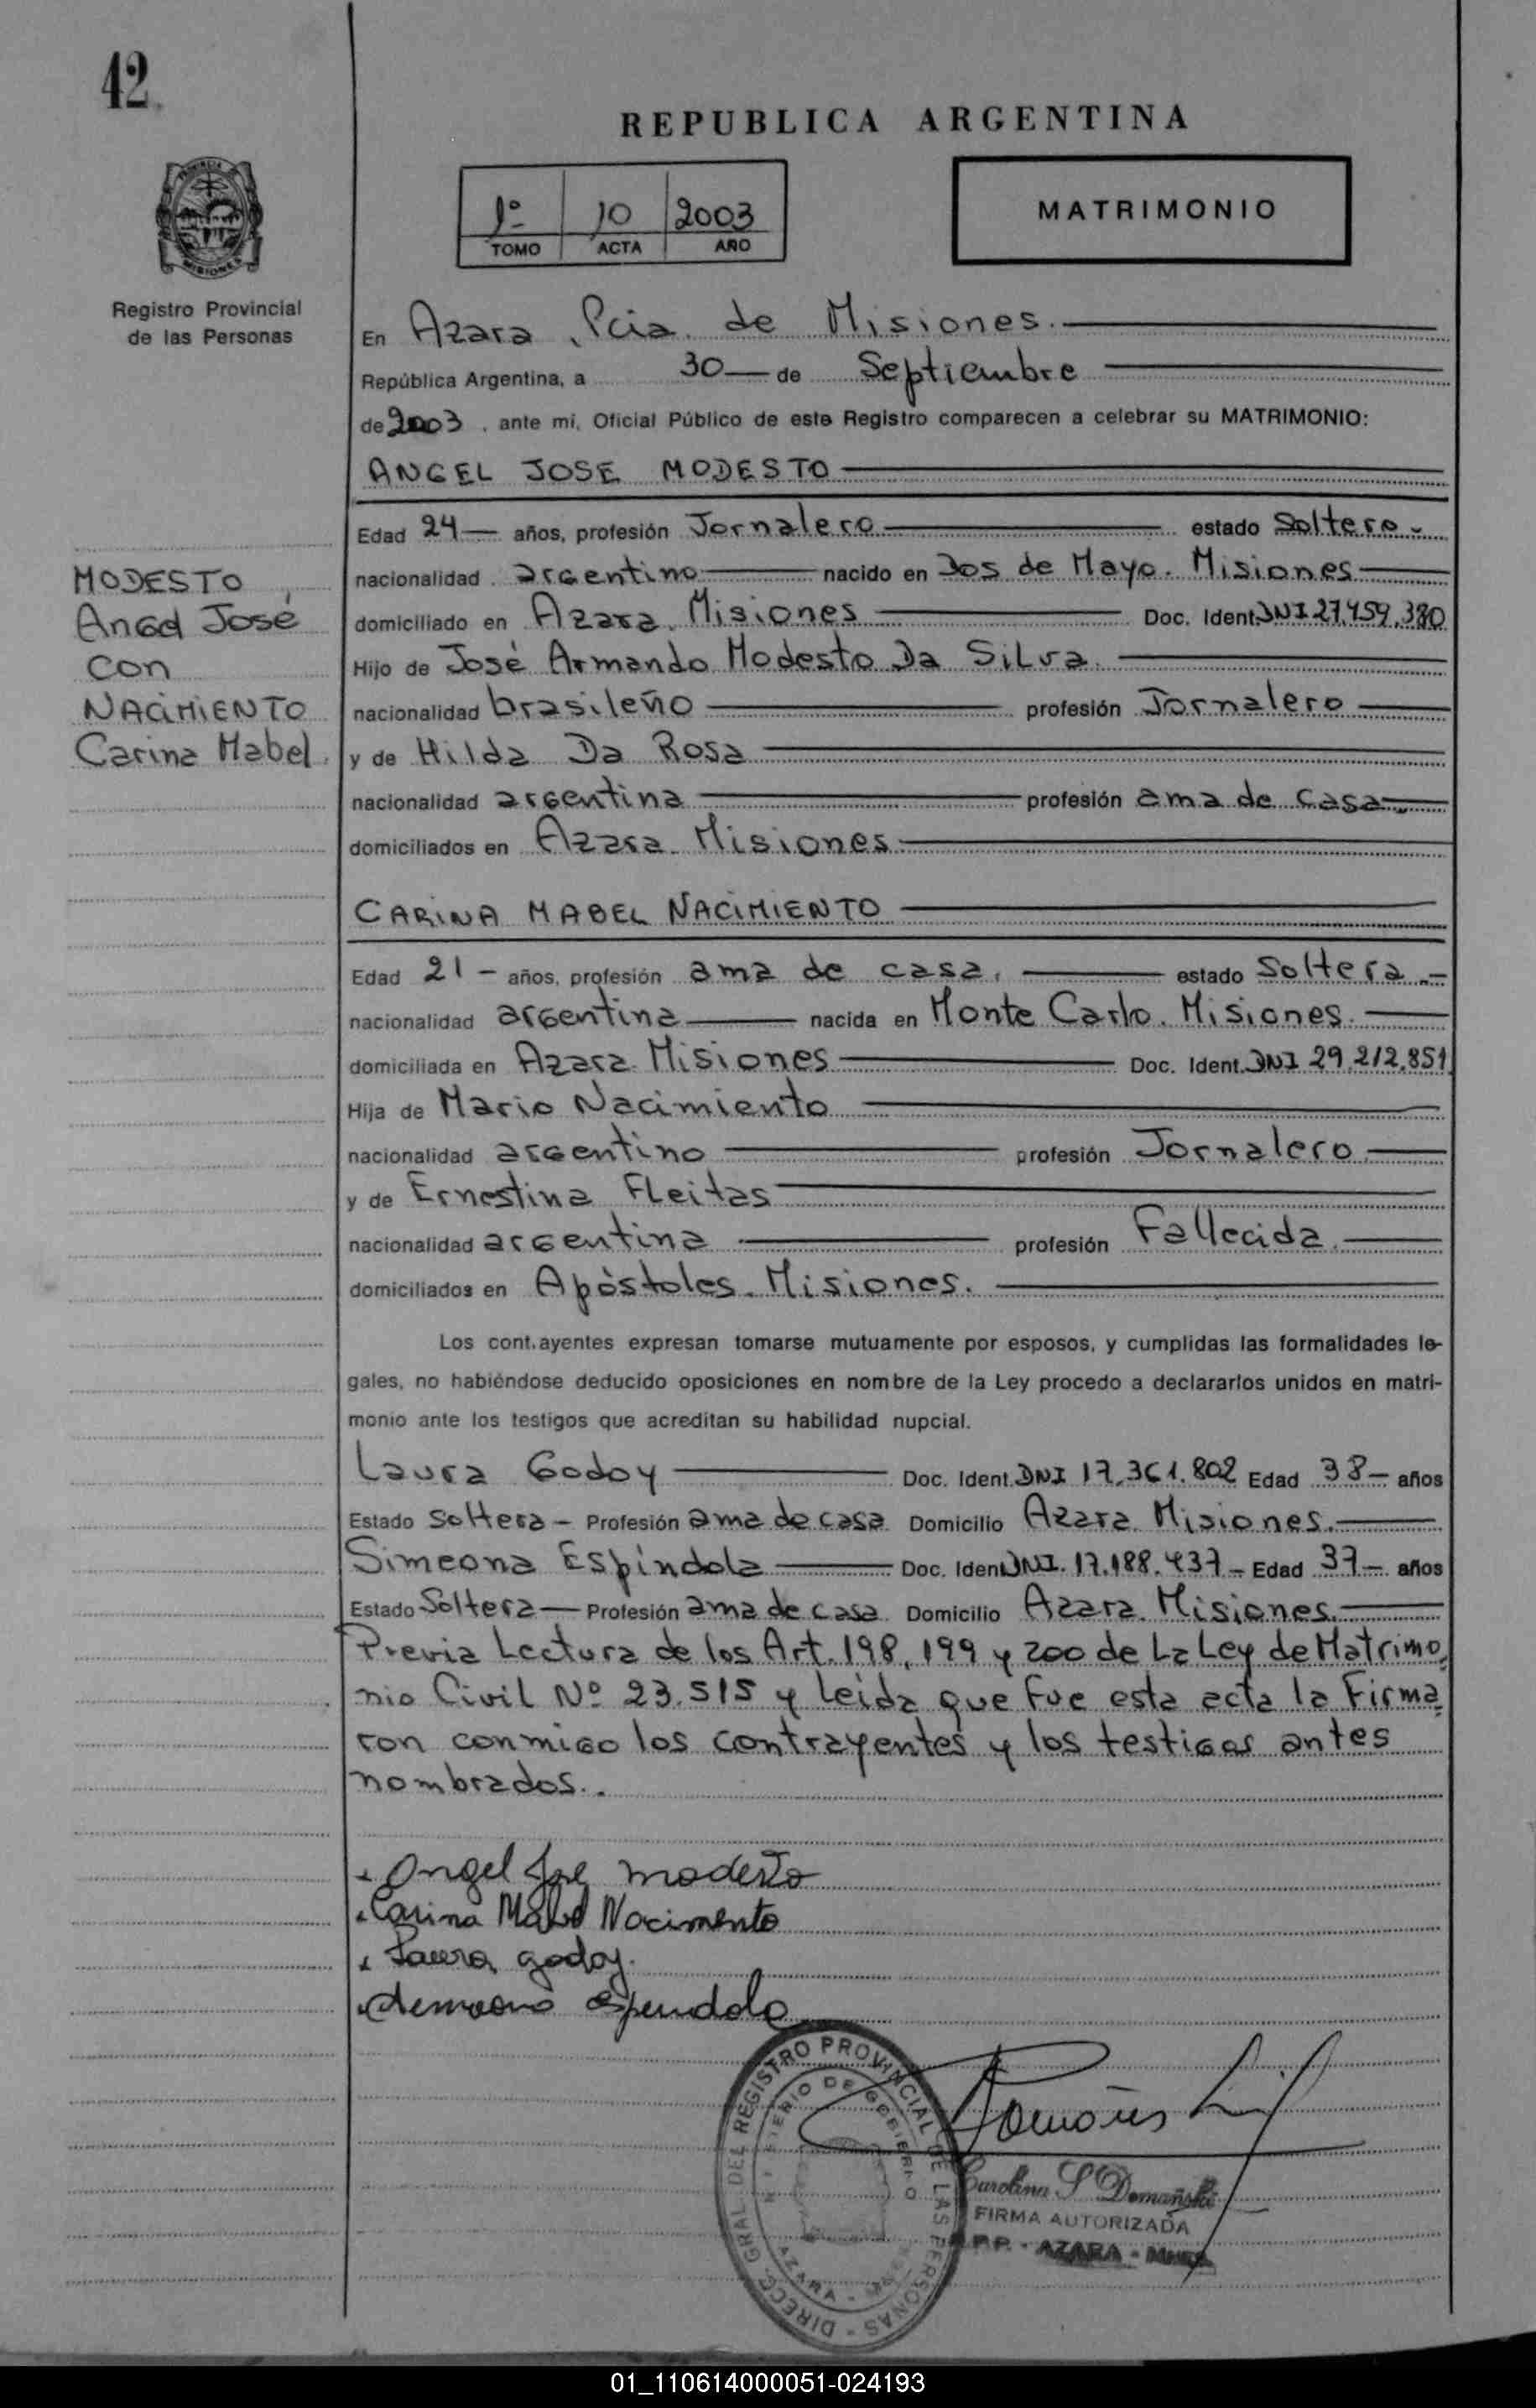 42
REPUBLICA ARGENTINA
1º 10 2003
TOMO ACTA AÑO
MATRIMONIO
Registro Provincial
de las Personas
En Azara, Pcia. de Misiones.
República Argentina, a 30 de Septiembre
de 2003, ante mi, Oficial Público de este Registro comparecen a celebrar su MATRIMONIO:
ANGEL JOSE MODESTO
Edad 24 años, profesión Jornalero estado Soltero.
nacionalidad argentino nacido en Dos de Mayo. Misiones
domiciliado en Azara. Misiones Doc. Ident. DNI 27.459.380
Hijo de José Armando Modesto Da Silva.
nacionalidad brasileño profesión Jornalero
y de Hilda Da Rosa
nacionalidad argentina profesión ama de casa
domiciliados en Azara. Misiones
MODESTO,
Angel José
con
NACIMIENTO
Carina Mabel.
CARINA MABEL NACIMIENTO
Edad 21 - años, profesión ama de casa. estado Soltera.-
nacionalidad argentina nacida en Monte Carlo. Misiones.
domiciliada en Azara. Misiones Doc. Ident. DNI 29.212.851
Hija de Mario Nacimiento
nacionalidad argentino profesión Jornalero
y de Ernestina Fleitas
nacionalidad argentina profesión Fallecida.
domiciliados en Apóstoles. Misiones.
Los cont.ayentes expresan tomarse mutuamente por esposos, y cumplidas las formalidades le-
gales, no habiéndose deducido oposiciones en nombre de la Ley procedo a declararlos unidos en matri-
monio ante los testigos que acreditan su habilidad nupcial.
Laura Godoy Doc. Ident. DNI 17.361.802 Edad 38 años
Estado Soltera - Profesión ama de casa Domicilio Azara. Misiones.
Simeona Espíndola Doc. Iden DNI. 17.188.437 - Edad 37 - años
Estado Soltera - Profesión ama de casa. Domicilio Azara. Misiones.
Previa Lectura de los Art. 198, 199 y 200 de La Ley de Matrimo
nio Civil Nº 23.515 y leída que fue esta acta la Firma
ron conmigo los contrayentes y los testigos antes
nombrados..
Angel Jose modesto
Carina Mabel Nacimento
Laura godoy.
espendola
DIRECC. GRAL. DEL REGISTRO PROVINCIAL DE LAS PERSONAS
MINISTERIO DE GOBIERNO
AZARA
Carolina S Domañski
FIRMA AUTORIZADA
R.P.P. - AZARA - Mnes.
01_110614000051-024193